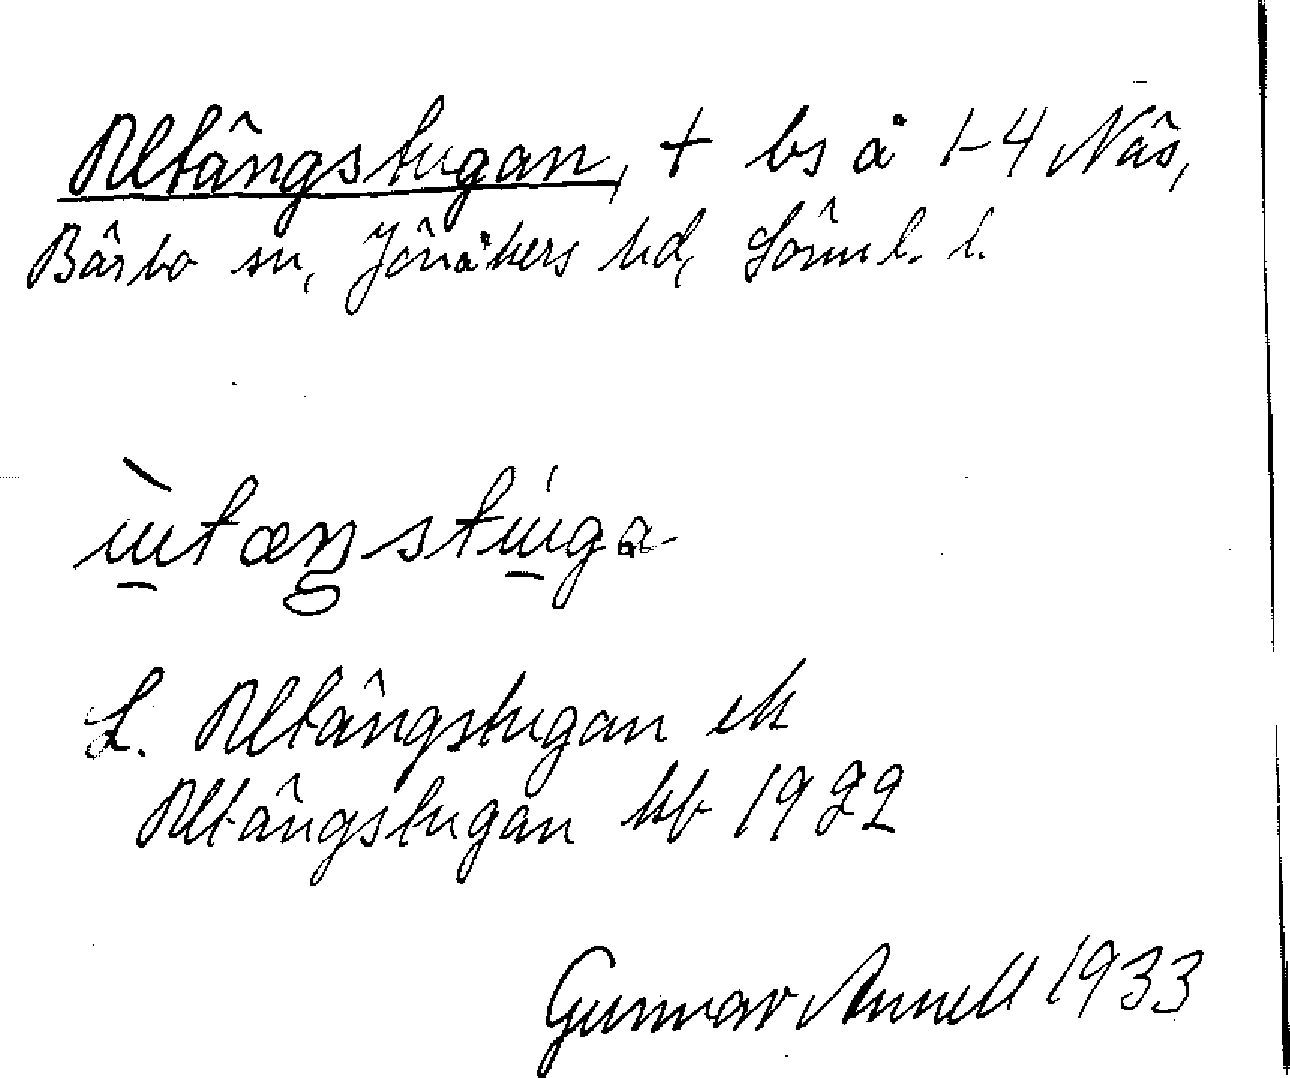 Utängstugan, + bs å 1-4 Näs,
Bärbo sn, Jönåkers hd, Sörml. l.
ùtæŋstúga
L. Utängstugan ek
Utängstugan kb 1922
Gunnar Annell 1933